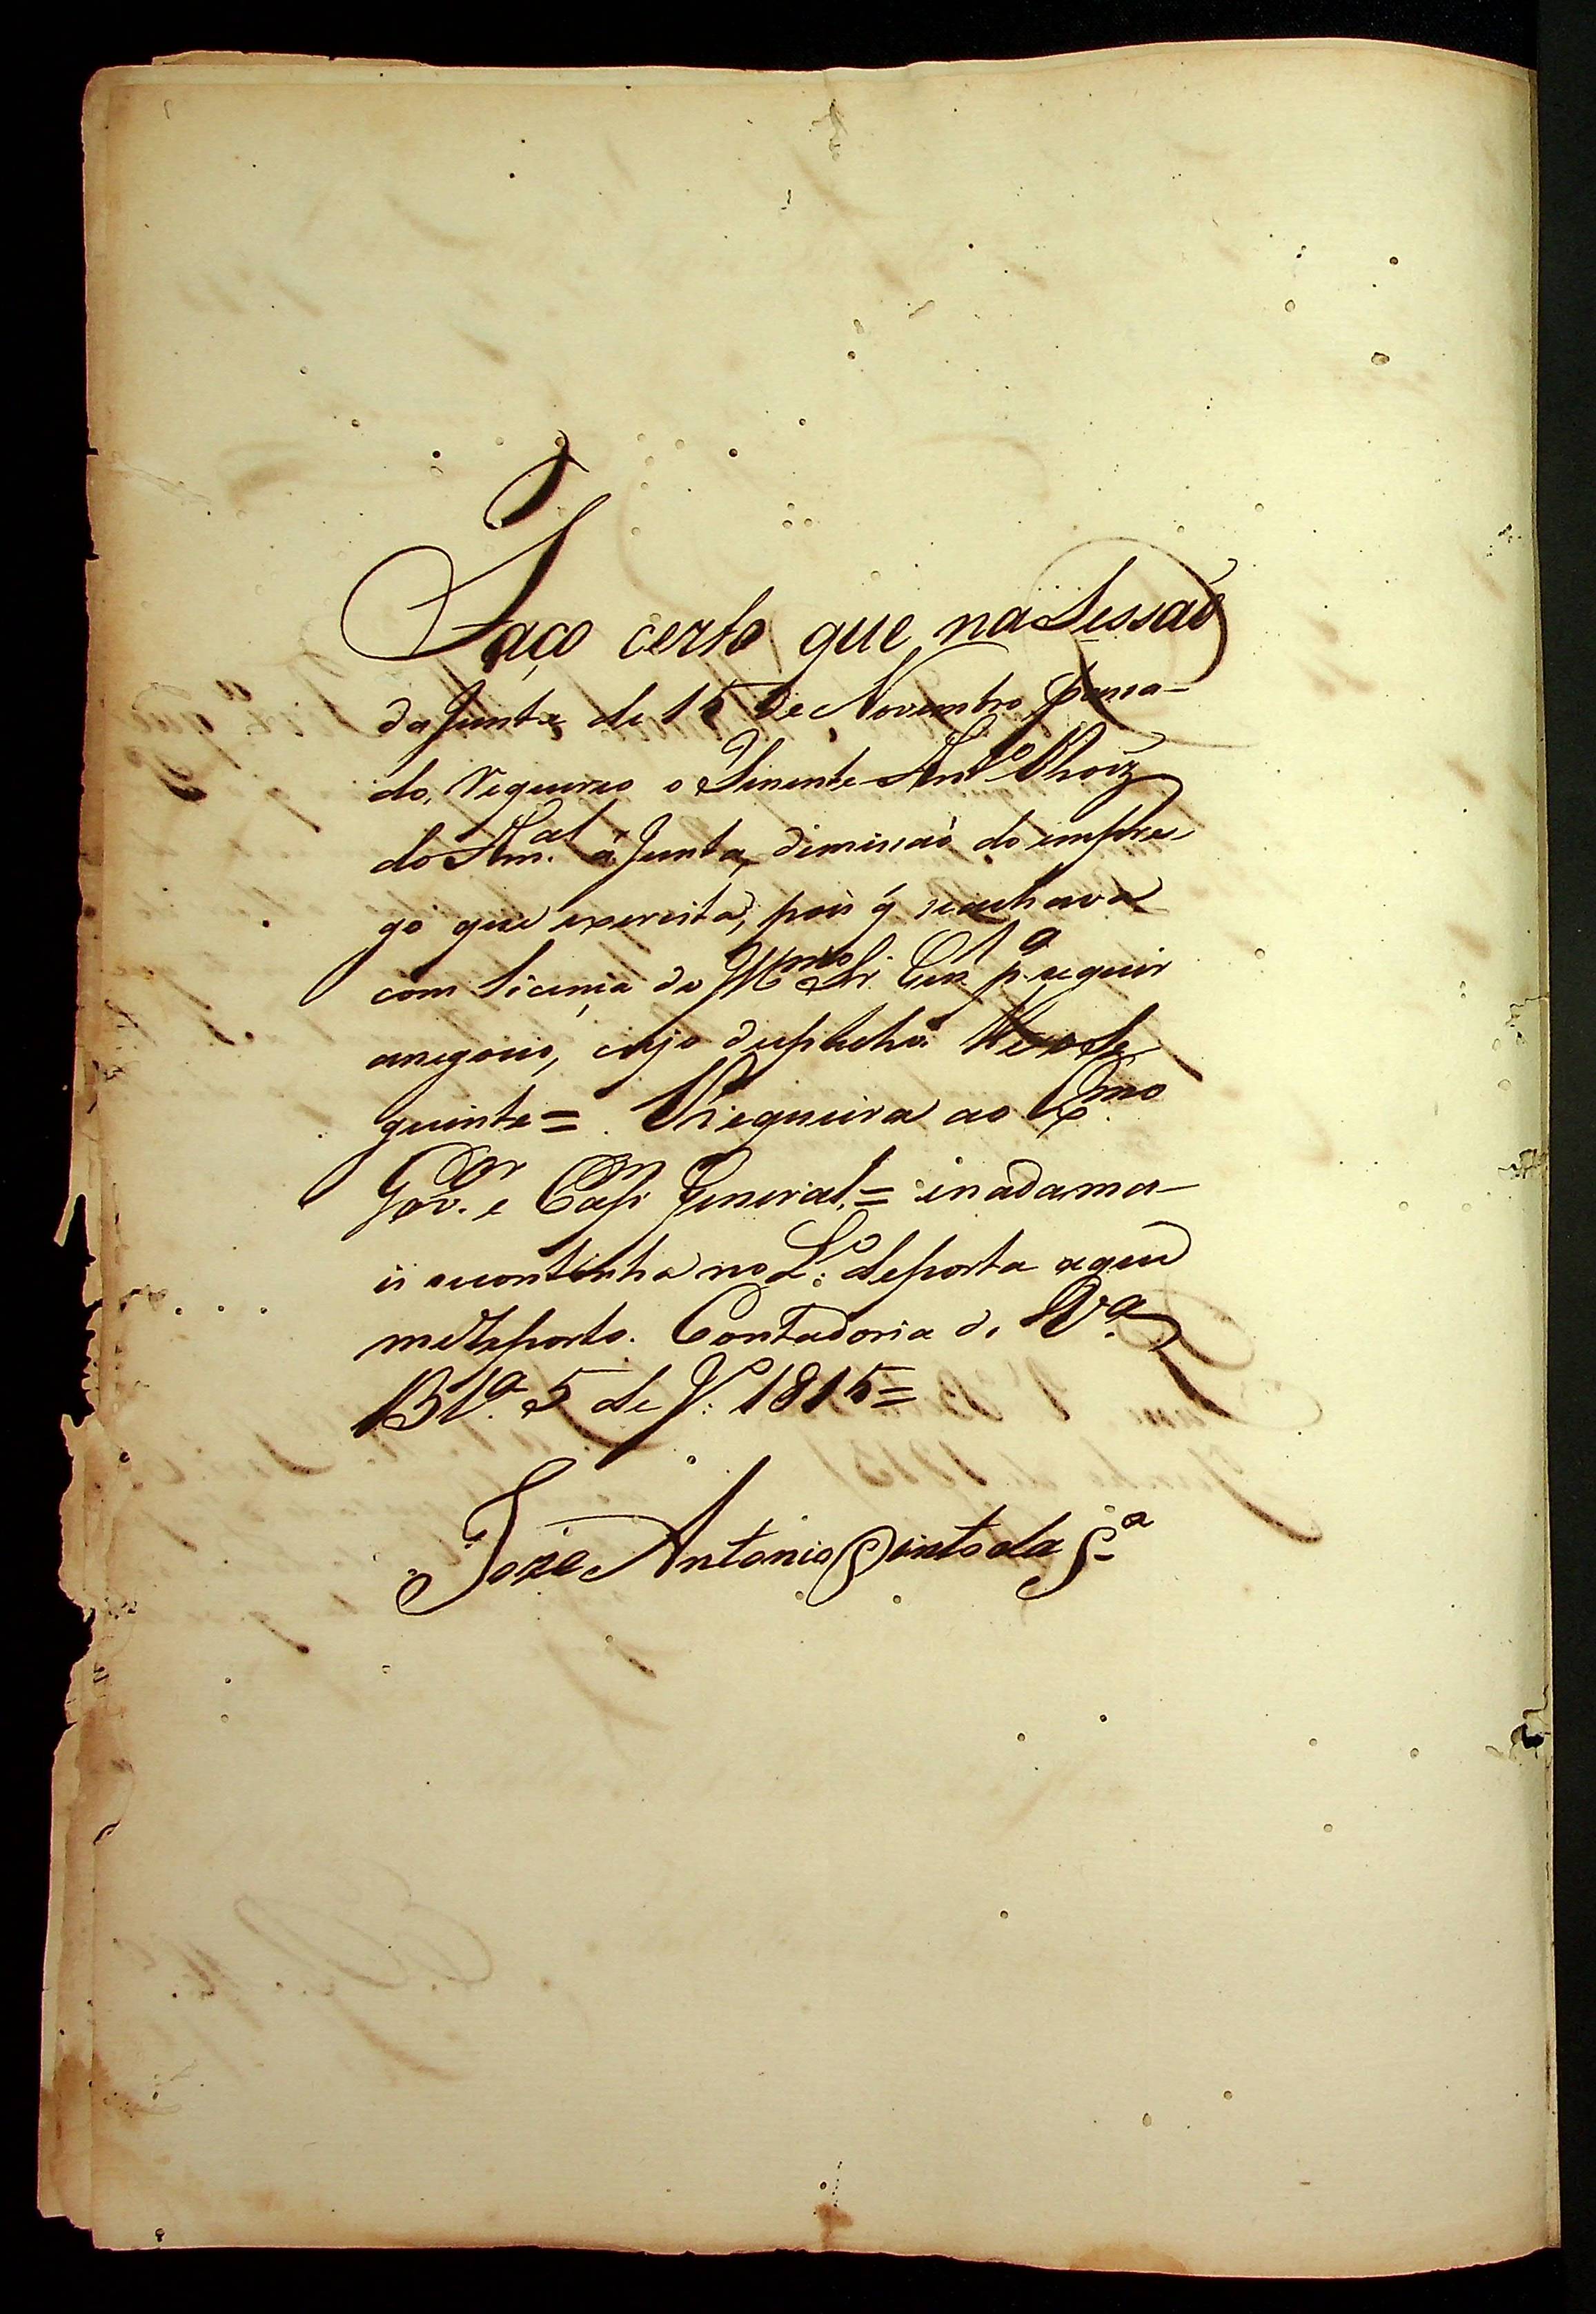 Faço certo que na Sessaõ
da Junta de 15 de Novembro passa-
do, Requereo o Tenente Ant.º Roiz
do Am.al á Junta, dimissaõ do empre-
go que exercita, pois q̃ se achava
com Licença do Ill.mo Sr. Gen.l p.a seguir
a negocio, cujo despacho he o Se-
guinte = Requeira ao Ex.mo
Gov.or e Cap.m General = e nada ma-
is se continha no L.º de porta a que
me reporto. Contadoria de V.a
B.la 5 de J.º 1815=
Joze Antonio Pinto da S.a